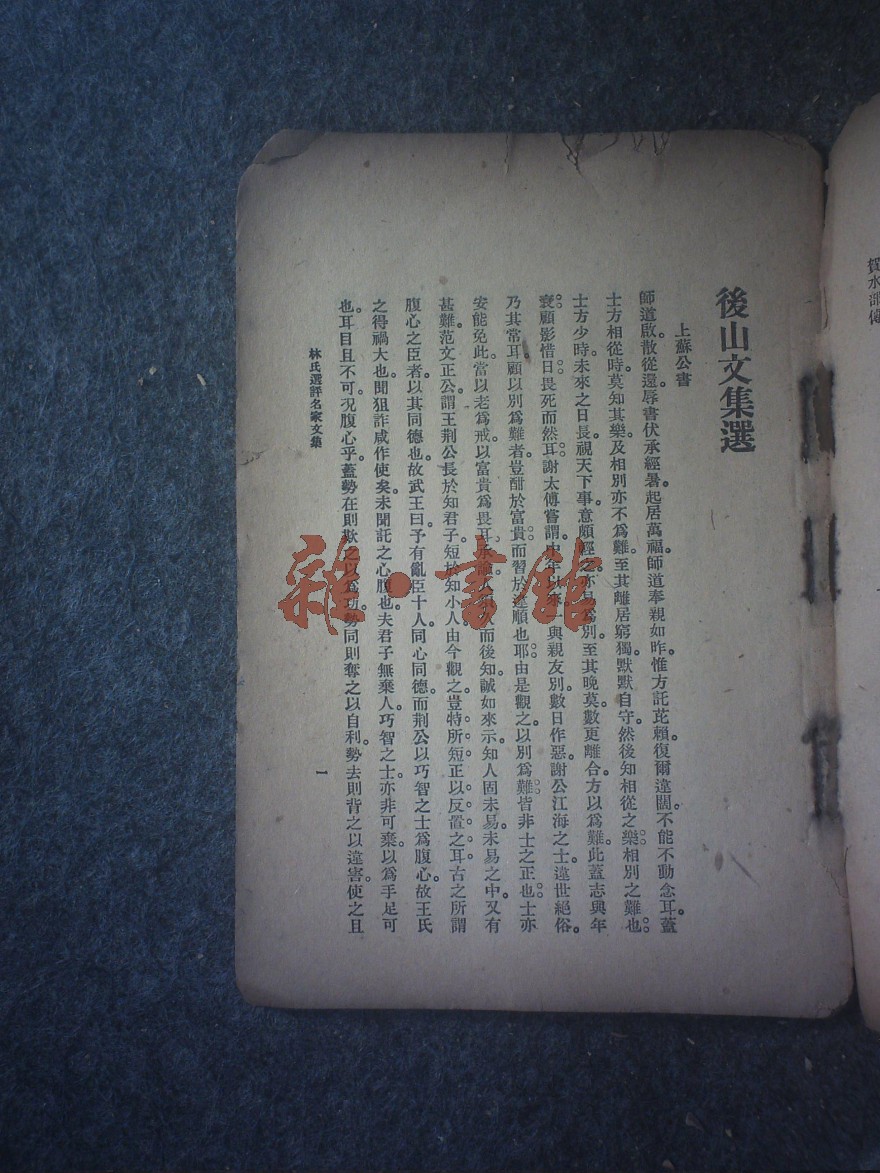 後山文集選
上蘇公書
師道啟散從還辱書伏承經暑。起居萬福。師道奉親如昨。惟方託芘賴。復爾違闊。不能不動念耳。蓋
士方相從時。莫知其樂。及相別亦不為難。至其離居窮獨。默默自守。然後知相從之樂。相別之難也。
士方少時。未來之日長。視天下事意頗輕之。亦易為別。至其晚莫。數更離合。方以為難。此蓋志與年
衰。顧影惜日畏死而然耳。謝太傅嘗謂中年以來。與親友別。數日作惡。謝公江海之士。違世絕俗。
乃其常耳。顧以別為難者。豈酣於富貴。而習於達順也耶。由是觀之。以別為難。皆非士之正也。士亦
安能免此。當以老為戒。以富貴為畏耳。承諭人而後知。誠如來示。知人固未易。未易之中。又有
甚難。范文正公謂王荊公長於知君子。短於知小人。由今觀之。豈特所短。正以反置之耳。古之所謂
腹心之臣者。以其同德也。故武王曰。予有亂臣十人。同心同德。而荊公以巧智之士為腹心。故王氏
之得禍大也。聞狙詐咸作使矣。未聞託之心腹也。夫君子無棄人。巧智之士。亦非可棄。以為手足可
也。耳目且不可。況腹心乎。蓋勢在則欺之以為功。勢同則奪之以自利。勢去則背之以違害。使之且
林氏選評名家文集
一
賀水部傅
雜·書館